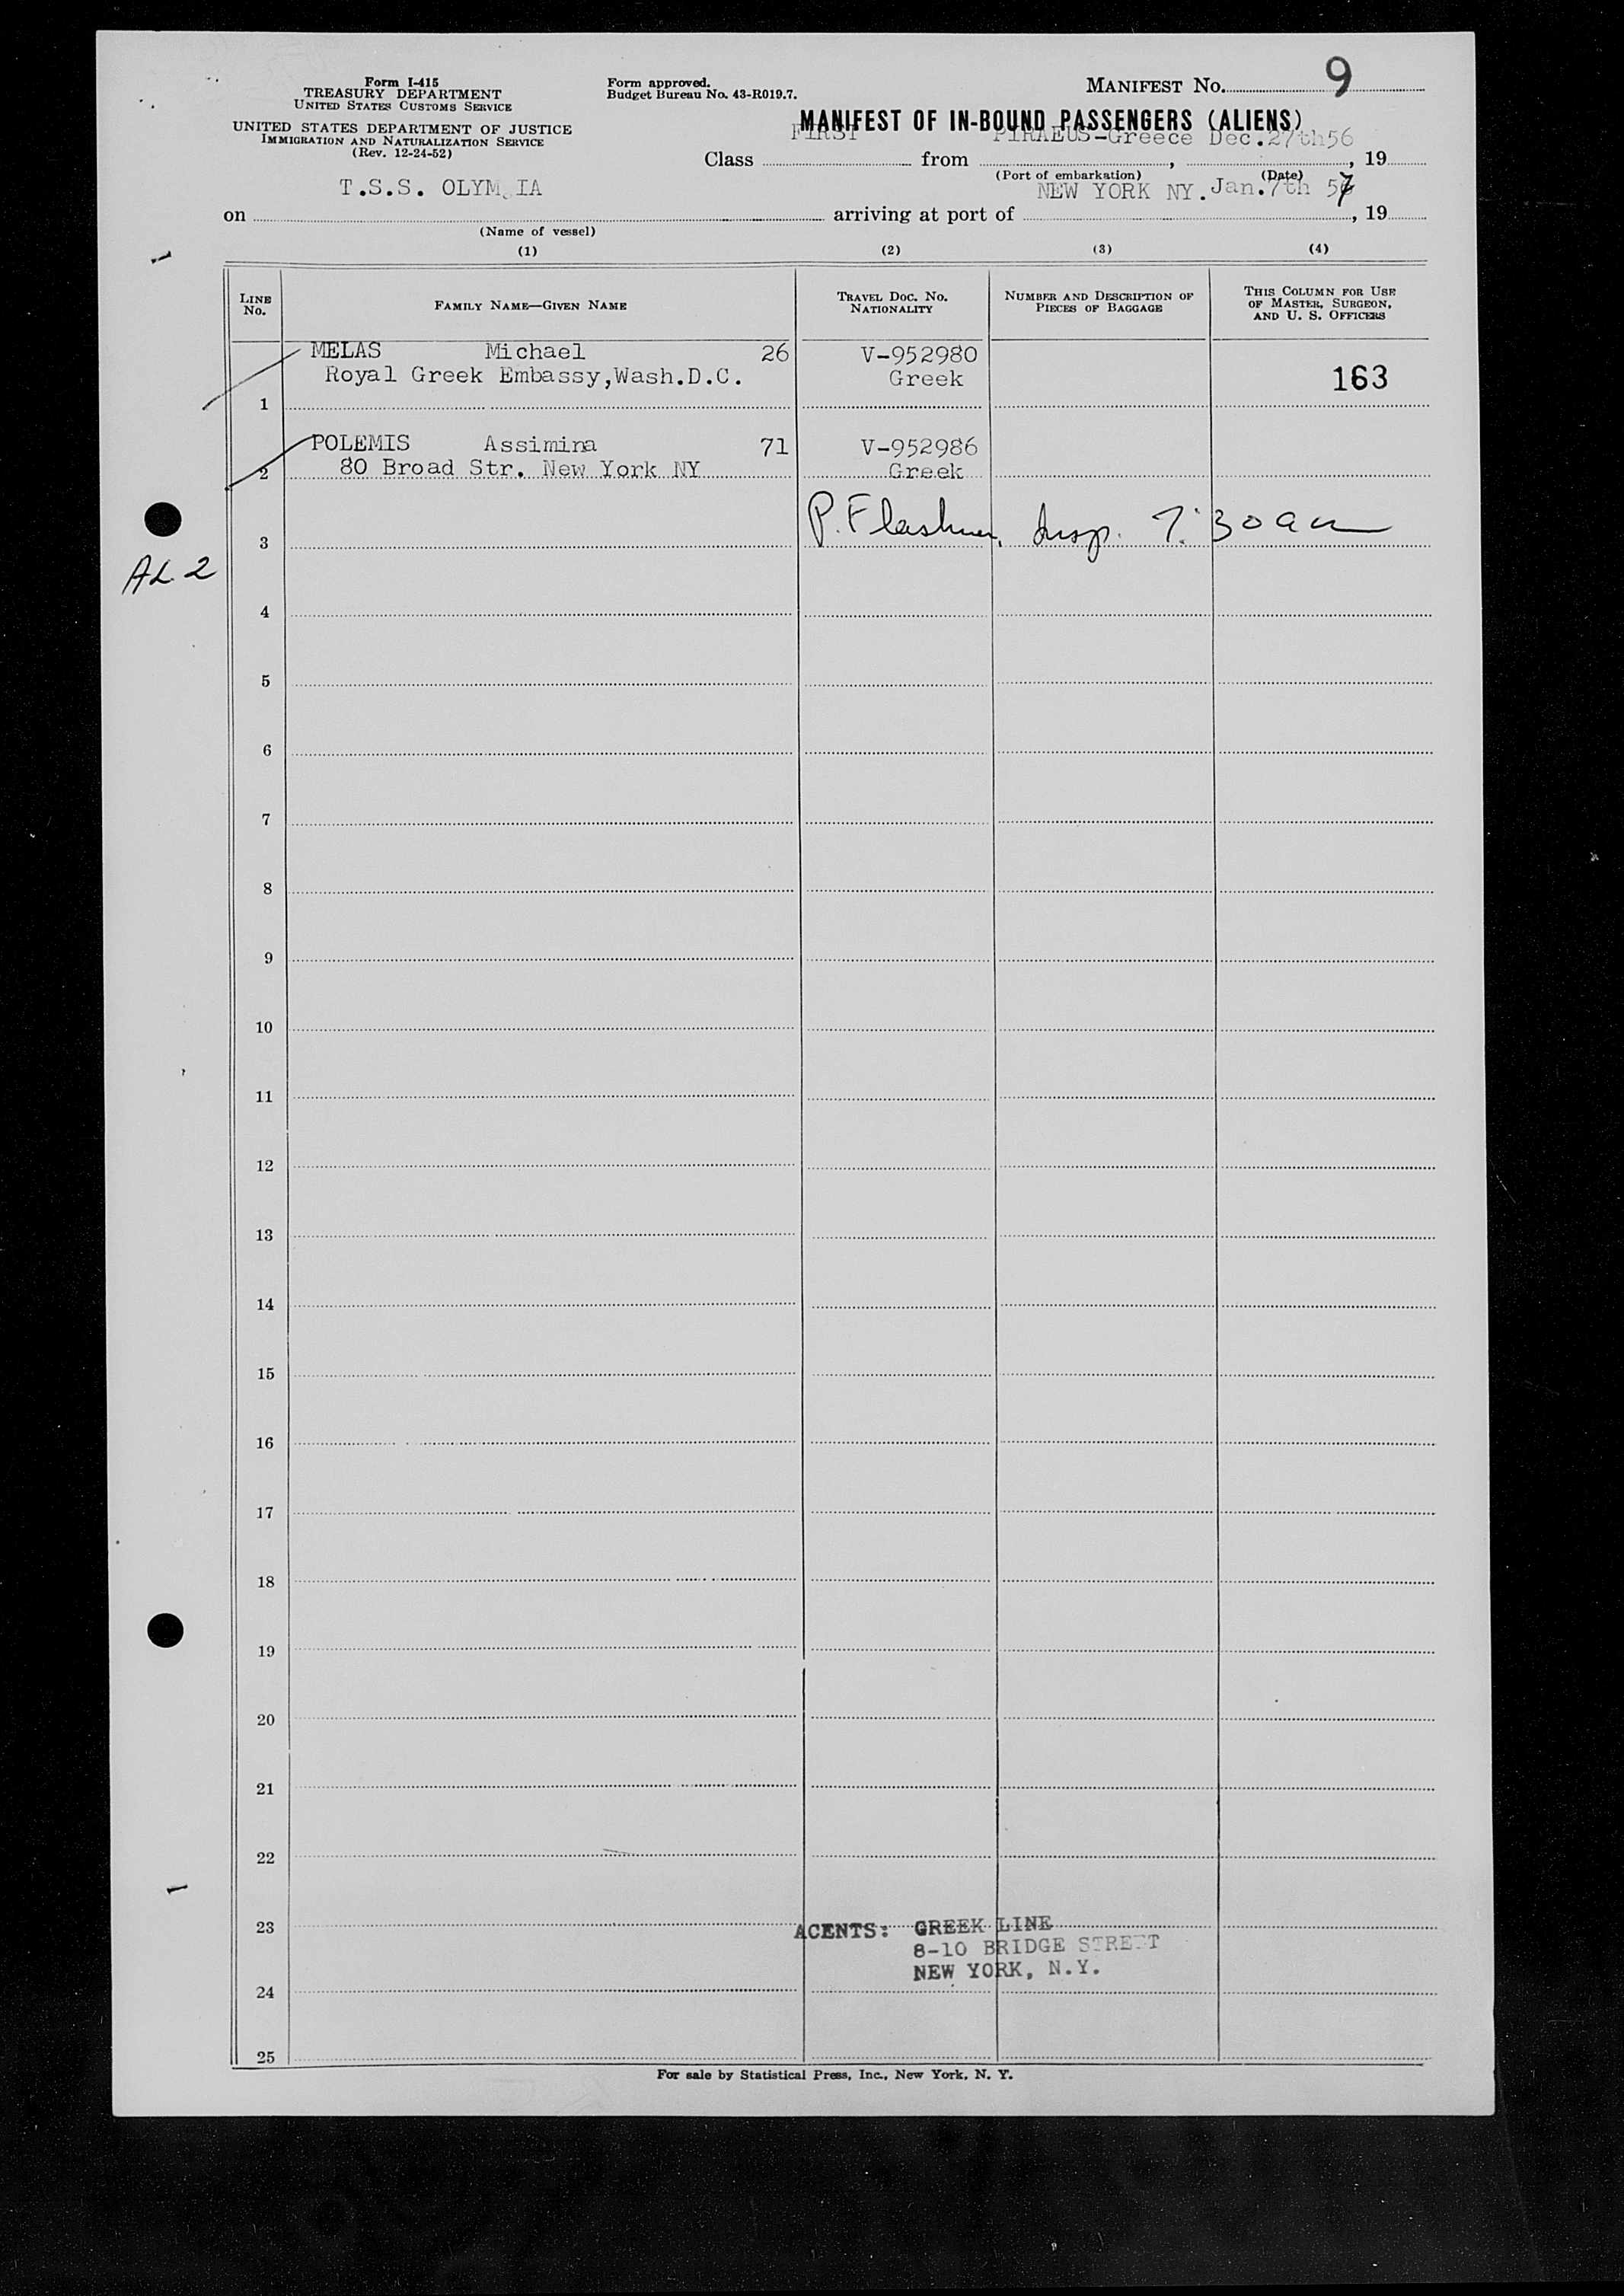 Form I-415
TREASURY DEPARTMENT
UNITED STATES CUSTOMS SERVICE
UNITED STATES DEPARTMENT OF JUSTICE
IMMIGRATION AND NATURALIZATION SERVICE
(Rev. 12-24-52)
Form approved.
Budget Bureau No. 43-R019.7.
MANIFEST No. 9
MANIFEST OF IN-BOUND PASSENGERS (ALIENS)
Class FIRST from PIRAEUS-Greece, Dec.27th56, 19
(Port of embarkation) (Date)
on T.S.S. OLYM IA arriving at port of NEW YORK NY. Jan.7th 57, 19
(Name of vessel)
(1) (2) (3) (4)
LINE No. FAMILY NAME—GIVEN NAME TRAVEL DOC. No. NATIONALITY NUMBER AND DESCRIPTION OF PIECES OF BAGGAGE THIS COLUMN FOR USE OF MASTER, SURGEON, AND U. S. OFFICERS
MELAS Michael 26 V-952980
Royal Greek Embassy,Wash.D.C. Greek 163
1
POLEMIS Assimina 71 V-952986
2 80 Broad Str. New York NY Greek
3 P. Flashner, Insp. 7:30 am
AL 2
4
5
6
7
8
9
10
11
12
13
14
15
16
17
18
19
20
21
22
23 AGENTS: GREEK LINE
8-10 BRIDGE STREET
NEW YORK, N.Y.
24
25
For sale by Statistical Press, Inc., New York, N. Y.